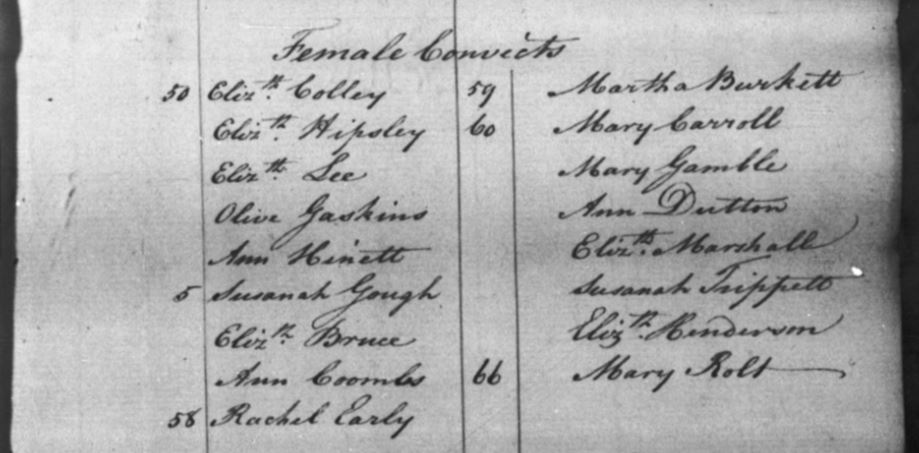 Female Convicts
50 Elizth. Colley
Elizth. Hipsley
Elizth. Lee
Olive Gaskins
Ann Hinett
5 Susanah Gough
Elizth. Bruce
Ann Coombs
58 Rachel Early
59 Martha Burkett
60 Mary Carroll
Mary Gamble
Ann Dutton
Elizth. Marshall
Susanah Trippett
Elizth. Henderson
66 Mary Rolt